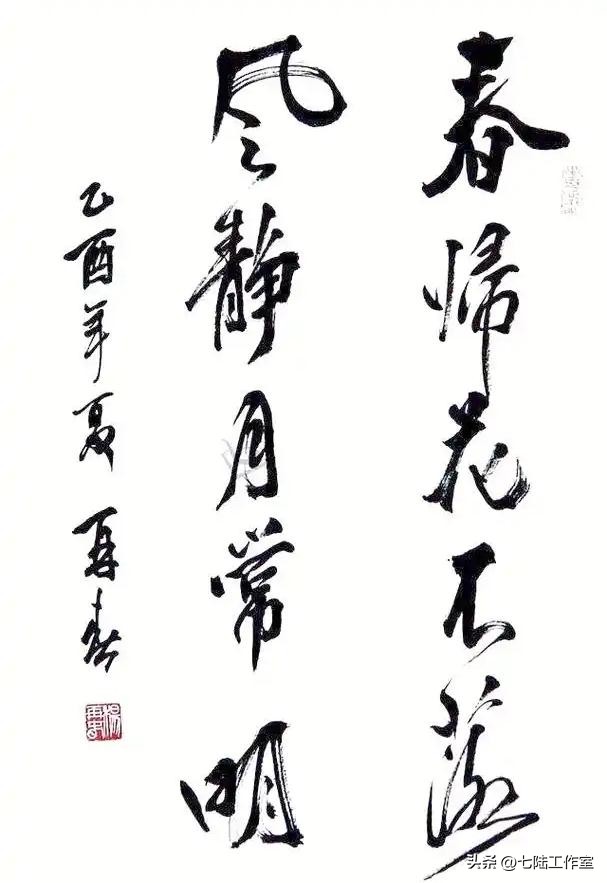 春帰花不落
风静月常明
乙酉年夏 再春
头条 @七陆工作室